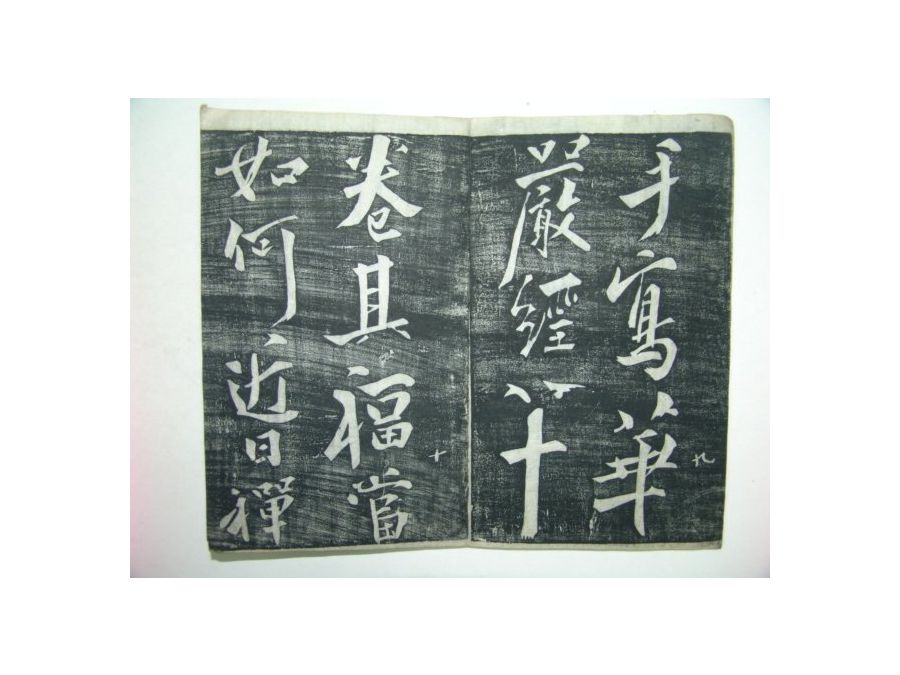 手寫華
九
嚴經八十
十
卷其福當
如何近日禪